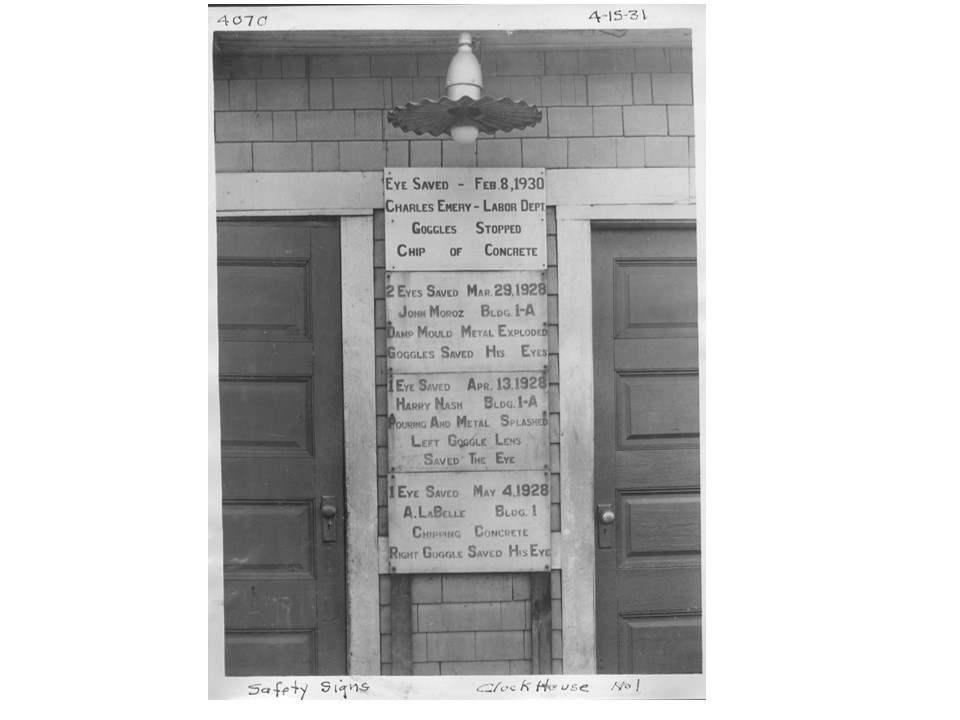 4070
4-15-31
EYE SAVED - FEB. 8, 1930
CHARLES EMERY - LABOR DEPT
GOGGLES STOPPED
CHIP OF CONCRETE
2 EYES SAVED MAR. 29, 1928
JOHN MOROZ BLDG. 1-A
DAMP MOULD METAL EXPLODED
GOGGLES SAVED HIS EYES
1 EYE SAVED APR. 13, 1928
HARRY NASH BLDG. 1-A
POURING AND METAL SPLASHED
LEFT GOGGLE LENS
SAVED THE EYE
1 EYE SAVED MAY 4, 1928
A. LABELLE BLDG. 1
CHIPPING CONCRETE
RIGHT GOGGLE SAVED HIS EYE
Safety Signs Clock House No 1